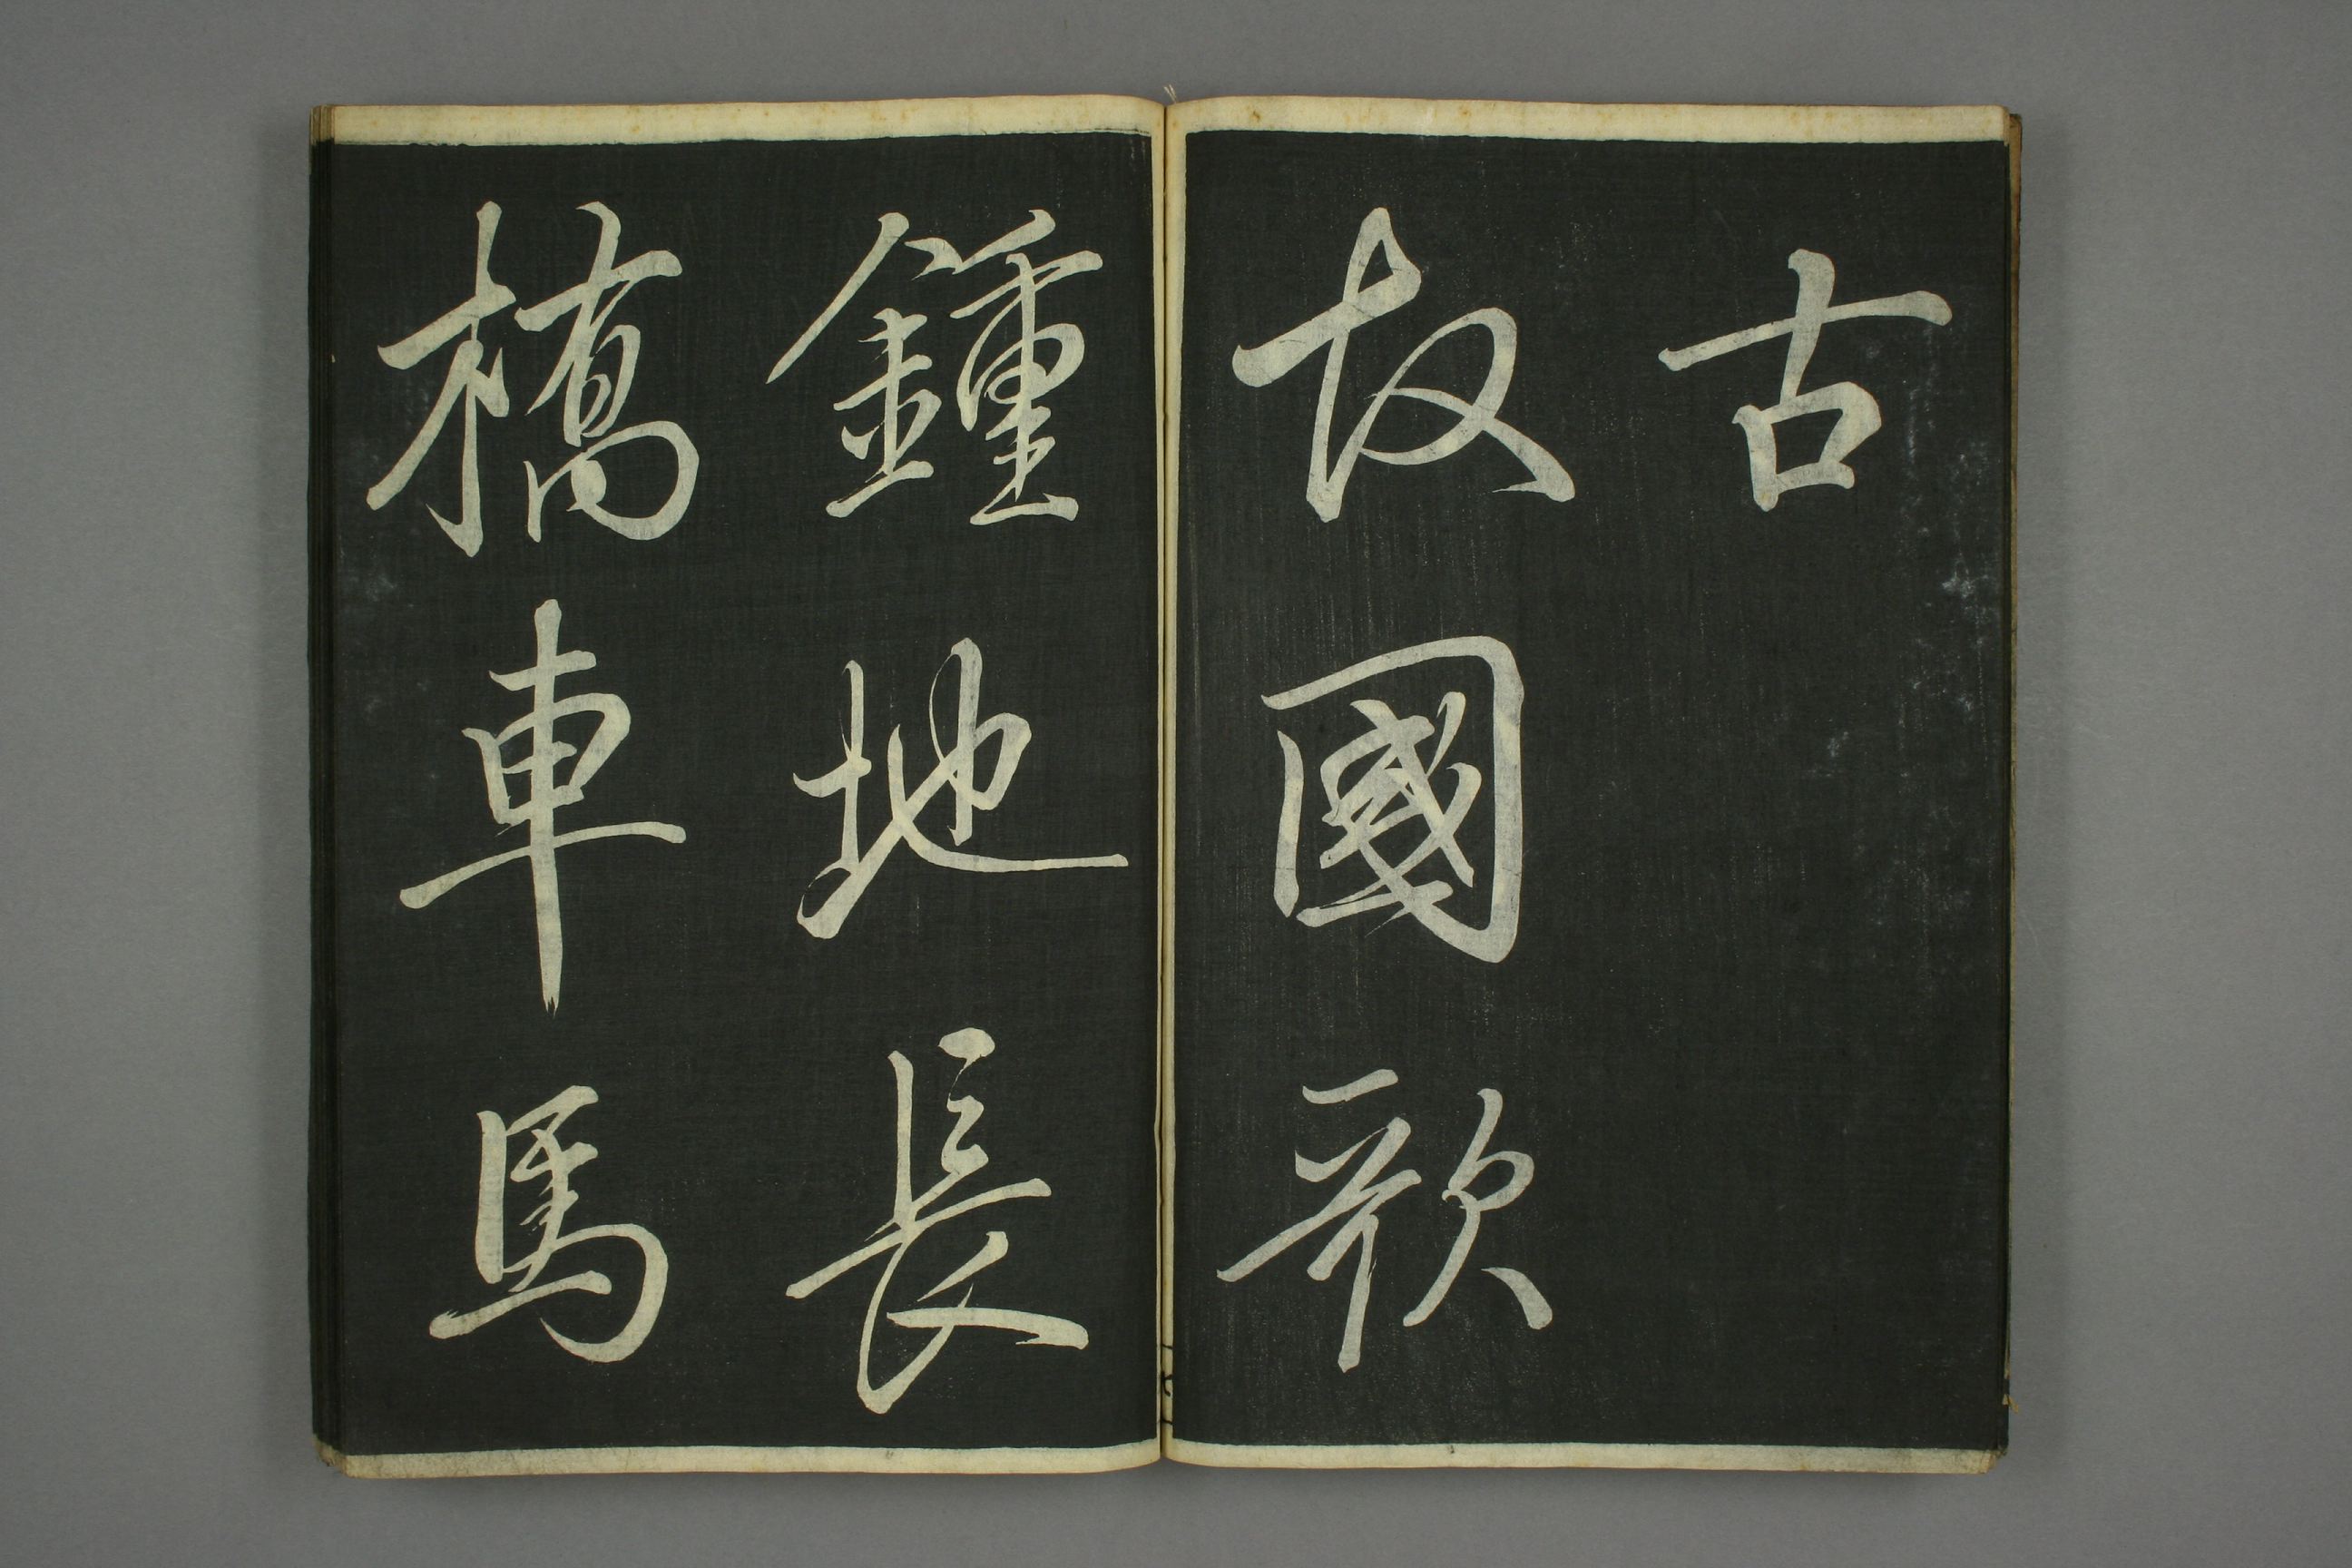 古
故國歌
鍾地長
橋車馬